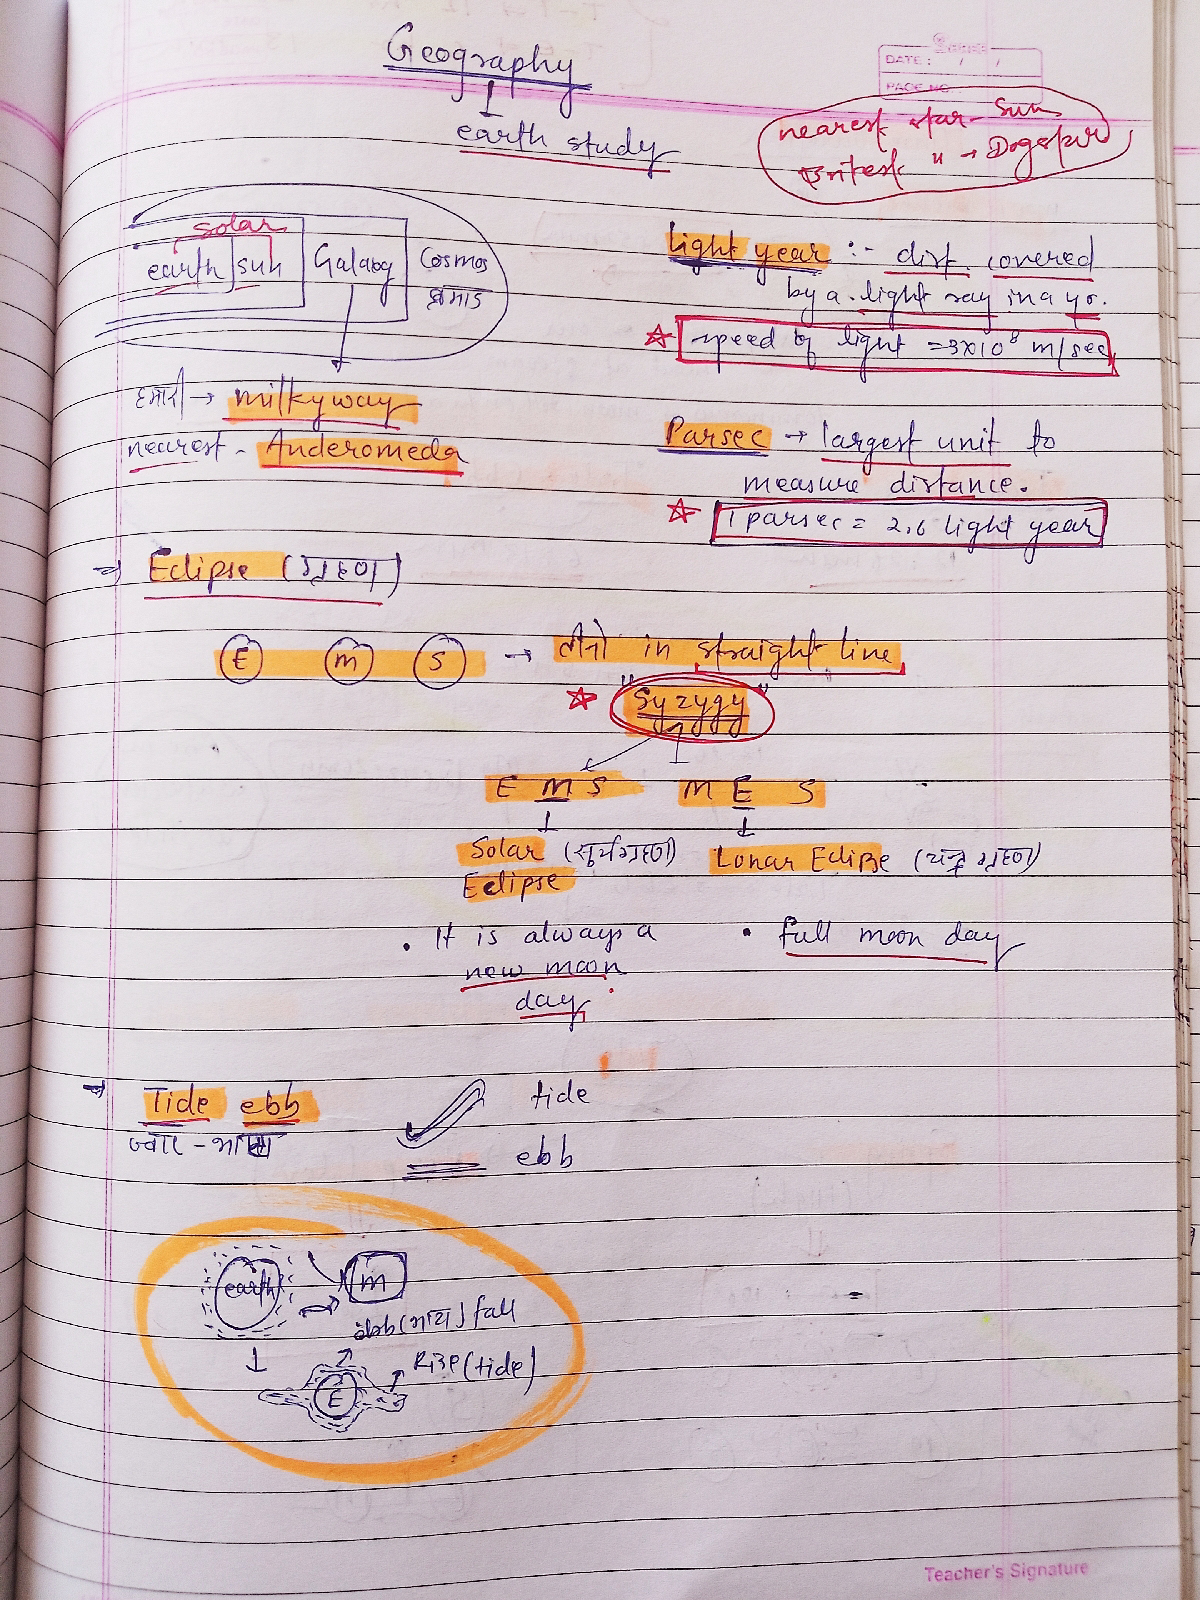 Geography
DATE : / /
PAGE NO.
earth study
nearest star - Sun
" → Dogstar
solar
earth sun Galaxy Cosmos
ब्रह्मांड
light year :- dist. covered
by a light ray in a yr.
☆ speed of light = 3x10⁸ m/sec
हमारी → milkyway
nearest - Anderomeda
Parsec → largest unit to
measure distance.
☆ 1 parsec = 2.6 light year
⇒ Eclipse (ग्रहण)
E m S → तीनो in straight line
☆ "Syzygy"
E M S M E S
Solar (सूर्यग्रहण) Lonar Eclipse (चन्द्र ग्रहण)
Eclipse
• It is always a • full moon day
new moon
day.
Tide ebb tide
ज्वार - भाटा ebb
earth m
ebb (भाटा) fall
Rise (tide)
E
Teacher's Signature